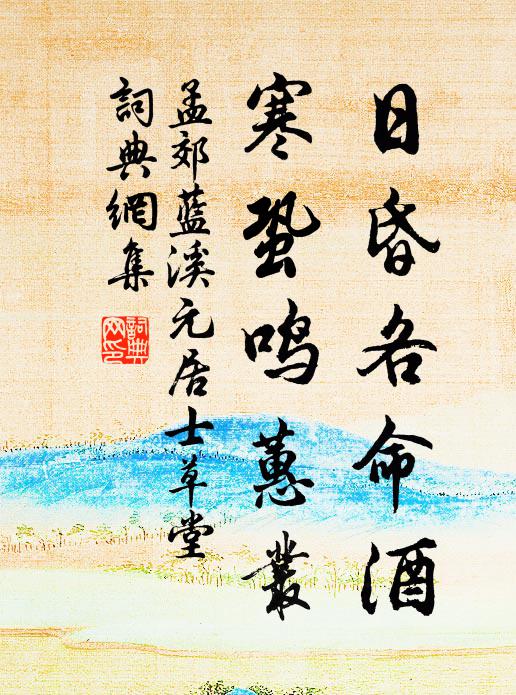 日昏各命酒
寒蛩鸣蕙叢
孟郊藍溪元居士草堂
詞典網集
詞典网印